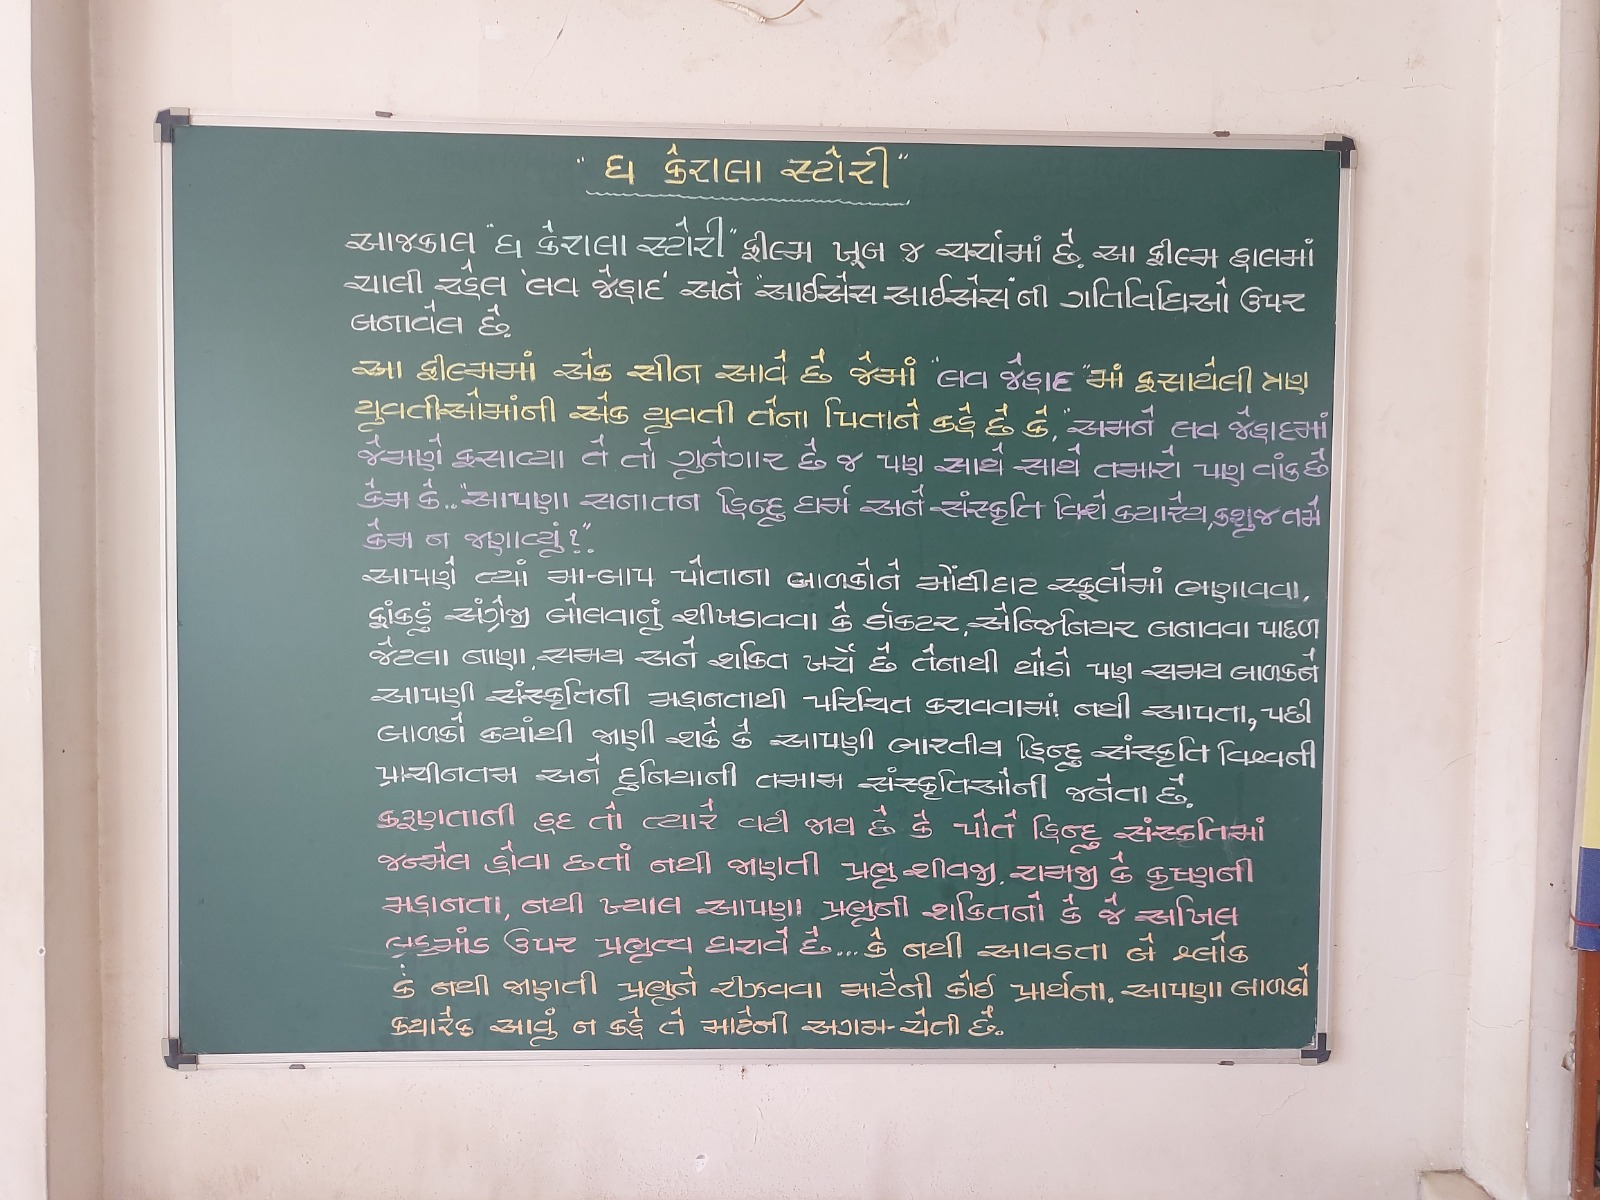 "ધ કેરાલા સ્ટોરી"
આજકાલ "ધ કેરાલા સ્ટોરી" ફીલ્મ ખૂબ જ ચર્ચામાં છે. આ ફીલ્મ હાલમાં
ચાલી રહેલ 'લવ જેહાદ' અને "આઈએસ આઈએસ"ની ગતિવિધિઓ ઉપર
બનાવેલ છે.
આ ફીલ્મમાં એક સીન આવે છે જેમાં "લવ જેહાદ"માં ફસાયેલી ત્રણ
યુવતીઓમાંની એક યુવતી તેના પિતાને કહે છે કે, "અમને લવ જેહાદમાં
જેમણે ફસાવ્યા તે તો ગૂનેગાર છે જ પણ સાથે સાથે તમારો પણ વાંક છે
કેમ કે.. "આપણા સનાતન હિન્દુ ધર્મ અને સંસ્કૃતિ વિશે કયારેય, કશુજ તમે
કેમ ન જણાવ્યું?"
આપણે ત્યાં મા-બાપ પોતાના બાળકોને મોંઘીદાટ સ્કૂલોમાં ભણાવવા,
ફાંકડું અંગ્રેજી બોલવાનું શીખડાવવા કે ડૉકટર, એન્જિનિયર બનાવવા પાછળ
જેટલા નાણા, સમય અને શકિત ખર્ચે છે તેનાથી થોડો પણ સમય બાળકને
આપણી સંસ્કૃતિની મહાનતાથી પરિચિત કરાવવામાં નથી આપતા, પછી
બાળકો કયાંથી જાણી શકે કે આપણી ભારતીય હિન્દુ સંસ્કૃતિ વિશ્વની
પ્રાચીનતમ અને દુનિયાની તમામ સંસ્કૃતિઓની જનેતા છે.
કરૂણતાની હદ તો ત્યારે વટી જાય છે કે પોતે હિન્દુ સંસ્કૃતિમાં
જન્મેલ હોવા છતાં નથી જાણતી પ્રભુ શીવજી, રામજી કે કૃષ્ણની
મહાનતા, નથી ખ્યાલ આપણા પ્રભૂની શકિતનો કે જે અખિલ
બ્રહ્માંડ ઉપર પ્રભુત્વ ધરાવે છે... કે નથી આવડતા બે શ્લોક
કે નથી જાણતી પ્રભુને રીઝવવા માટેની કોઈ પ્રાર્થના. આપણા બાળકો
કયારેક આવું ન કહે તે માટેની અગમ-ચેતી છે.